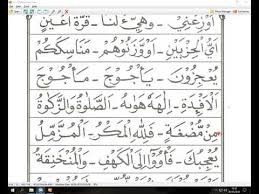 أَوْزِعْنِي - وَهَيِّئْ لَنَا - قُرَّةَ أَعْيُنٍ
أَيُّ الْحِزْبَيْنِ - أَوْوَزَنُوهُمْ - مَنَاسِكَكُمْ
يُعْجِزُونَ - يَأْجُوجَ - مَأْجُوجَ
الْأَفْئِدَةِ - إِلٰهَهُ هَوٰىهُ - الصَّلٰوةُ وَالزَّكٰوةُ
مِنْ مُضْغَةٍ - فَلِلّٰهِ الْمَكْرُ - الْمُزَّمِّلُ
يُعْجِبُكَ - فَأْوُوا إِلَى الْكَهْفِ - وَالْمُنْخَنِقَةُ